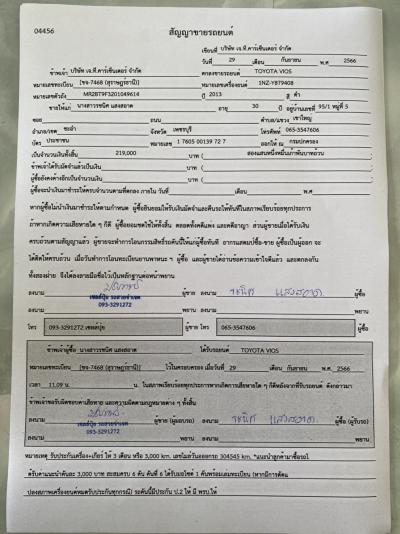 04456
สัญญาขายรถยนต์
เขียนที่ บริษัท เจ.ที.คาร์เซ็นเตอร์ จำกัด
วันที่ 29 เดือน กันยายน พ.ศ 2566
ข้าพเจ้า บริษัท เจ.ที.คาร์เซ็นเตอร์ จำกัด ตกลงขายรถยนต์ TOYOTA VIOS
หมายเลขทะเบียน [ขจ-7468 (สุราษฎรธานี)] หมายเลขเครื่องยนต์ 1NZ-Y879408
หมายเลขตัวถัง MR2BT9F3201049614 ปี 2013 สี ดำ
ขายให้แก่ นางสาวรชนิต แสงสอาด อายุ 30 ปี อยู่บ้านเลขที่ 95/1 หมู่ที่ 5
ซอย ถนน ตำบล/แขวง เขาใหญ่
อำเภอ/เขต ชะอำ จังหวัด เพชรบุรี โทรศัพท์ 065-3547606
บัตร ประชาชน หมายเลข 1 7605 00139 72 7 ออกให้ ณ กรมปกครอง
เป็นจำนวนเงินทั้งสิ้น 219,000 บาท ( สองแสนหนึ่งหมื่นเก้าพันบาทถ้วน )
ข้าพเจ้าได้รับมัดจำแล้วเป็นเงิน บาท ( )
ผู้ซื้อยังคงค้างอีกเป็นจำนวนเงิน บาท ( )
ผู้ซื้อจะนำเงินมาชำระให้ครบจำนวนตามที่ตกลง ภายใน วันที่ เดือน พ.ศ
หากผู้ซื้อไม่นำเงินมาชำระให้ตามกำหนด ผู้ซื้อยินยอมให้ริบเงินมัดจำและคืนรถให้ทันทีในสภาพเรียบร้อยทุกประการ
ถ้าหากเกิดความเสียหายใด ๆ ก็ดี ผู้ซื้อยอมชดใช้ให้ทั้งสิ้น ตลอดทั้งคดีแพ่ง และคดีอาญา ส่วนผู้ขายเมื่อได้รับเงิน
ครบถ้วนตามสัญญาแล้ว ผู้ขายจะทำการโอนกรรมสิทธิ์รถคันนี้ให้แก่ผู้ซื้อทันที อากรแสตมป์ซื้อ-ขาย ผู้ซื้อเป็นผู้ออก จะ
ได้ติดให้ครบถ้วน เมื่อวันทำการโอนทะเบียนยานพาหนะ ฯ ผู้ซื้อ และผู้ขายได้อ่านข้อความเข้าใจดีแล้ว และตกลงกัน
ทั้งสองฝ่าย จึงได้ลงลายมือชื่อไว้เป็นหลักฐานต่อหน้าพยาน
ลงนาม ผู้ขาย ลงนาม รชนิต แสงสอาด ผู้ซื้อ
ลงนาม พยาน ลงนาม พยาน
093-3291272
โทร 093-3291272 เซลล์ปุ้ย ผู้ขาย โทร 065-3547606 ผู้ซื้อ
ข้าพเจ้าผู้ซื้อ นางสาวรชนิต แสงสอาด ได้รับรถยนต์ TOYOTA VIOS
หมายเลขทะเบียน [ขจ-7468 (สุราษฎรธานี)] ไว้ในครอบครอง เมื่อวันที่ 29 เดือน กันยายน พ.ศ. 2566
เวลา 11.09 น. น. ในสภาพเรียบร้อยทุกประการหากเกิดการเสียหายใด ๆ ก็ดีหลังจากที่รับรถยนต์ ดังกล่าวมา
ข้าพเจ้าขอรับผิดชอบค่าเสียหาย และความผิดตามกฎหมายต่าง ๆ ทั้งสิ้น
ลงนาม ผู้ขาย (ผู้มอบรถ) ลงนาม รชนิต แสงสอาด ผู้ซื้อ (ผู้รับรถ)
ลงนาม พยาน ลงนาม พยาน
093-3291272
หมายเหตุ รับประกันเครื่อง+เกียร์ ให้ 3 เดือน หรือ 3,000 km. เลขไมล์วันออกรถ 304545 km. *แนะนำลูกค้ามาซื้อรถได้
ได้รับค่าแนะนำคันละ 3,000 บาท สะสมครบ 6 คัน คันที่ 6 ได้รับมอไซค์ 1 คันพร้อมเล่มทะเบียน (หากมีการดัดแ
ปลงสภาพเครื่องยนต์หมดรับประกันทุกกรณี) ระคันนี้มีประกัน ป.2 ให้ มี พรบ.ให้